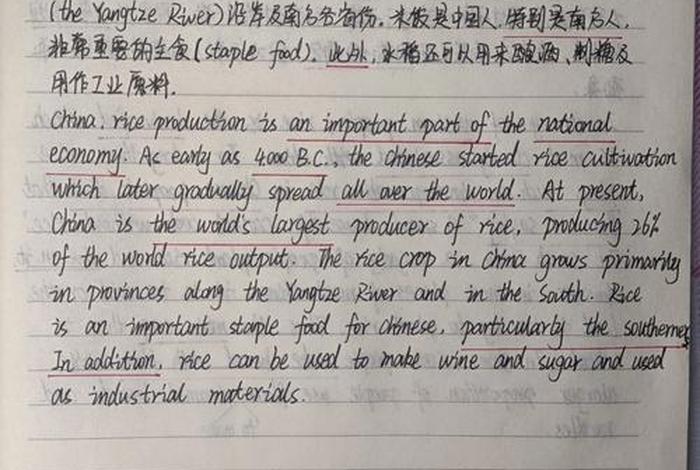 (the Yangtze River)沿岸及南方各省份。米饭是中国人,特别是南方人,
非常重要的主食(staple food)。此外,水稻还可以用来酿酒、制糖及
用作工业原料.
China. rice production is an important part of the national
economy. As early as 4000 B.C., the chinese started rice cultivation
which later gradually spread all over the world. At present,
China is the world's largest producer of rice, producing 26%
of the world rice output. The rice crop in China grows primarily
in provinces along the Yangtze River and in the south. Rice
is an important staple food for chinese, particularly the southerners
In addition, rice can be used to make wine and sugar and used
as industrial materials.